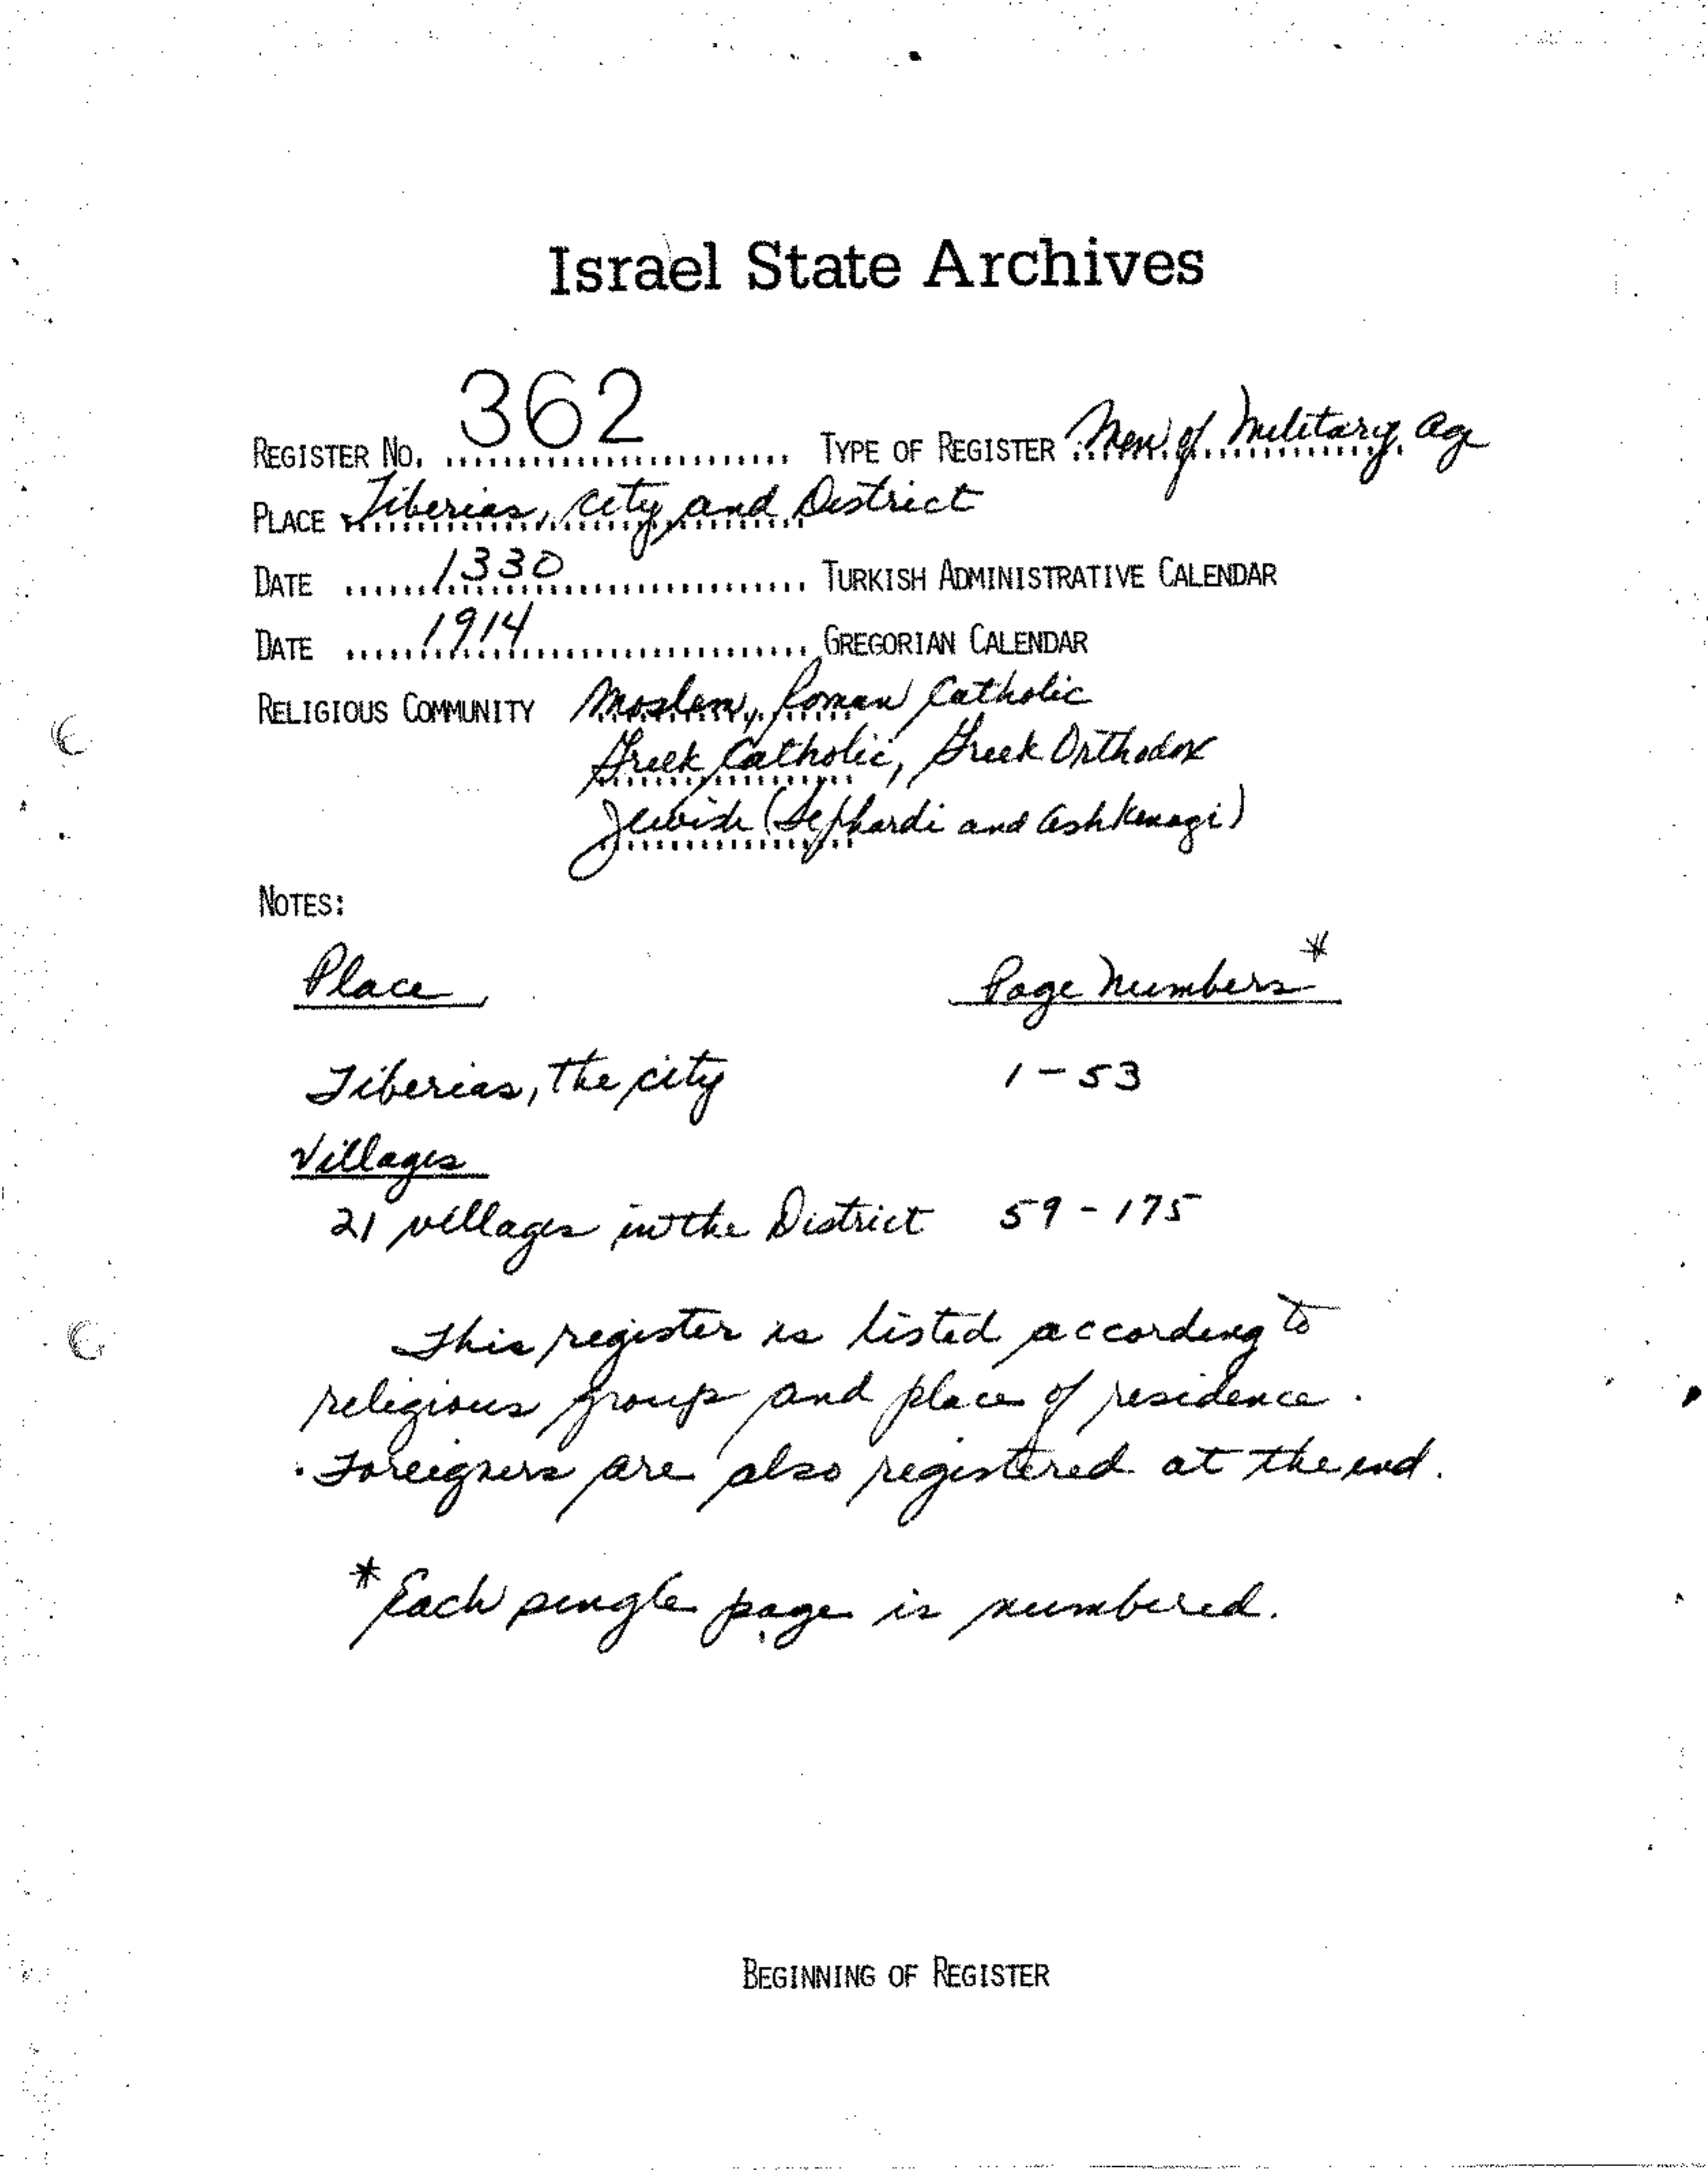 Israel State Archives
REGISTER NO. 362 TYPE OF REGISTER Men of Military Age
PLACE Tiberias, City and District
DATE 1330 TURKISH ADMINISTRATIVE CALENDAR
DATE 1914 GREGORIAN CALENDAR
RELIGIOUS COMMUNITY Moslem, Roman Catholic
Greek Catholic, Greek Orthodox
Jewish (Sephardi and Ashkenazi)
NOTES:
Place Page Numbers*
Tiberias, the city 1-53
Villages
21 villages in the District 59-175
This register is listed according to
religious group and place of residence.
Foreigners are also registered at the end.
* Each single page is numbered.
BEGINNING OF REGISTER